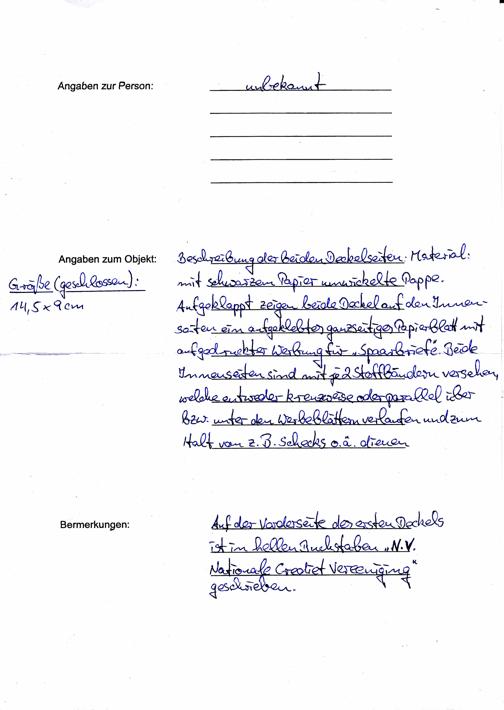 Angaben zur Person: unbekannt
Angaben zum Objekt: Beschreibung der beiden Deckelseiten. Material:
Größe (geschlossen): mit schwarzem Papier umwickelte Pappe.
14,5 x 9 cm
Aufgeklappt zeigen beide Deckel auf den Innen-
seiten ein aufgeklebtes ganzseitiges Papierblatt mit
aufgedruckter Werbung für „Spaarbriefe". Beide
Innenseiten sind mit je 2 Stoffbändern versehen,
welche entweder kreuzweise oder parallel über
bzw. unter den Werbeblättern verlaufen und zum
Halt von z.B. Schecks o.ä. dienen
Bermerkungen: Auf der Vorderseite des ersten Deckels
ist in hellen Buchstaben „N.V.
Nationale Crediet Vereeniging"
geschrieben.